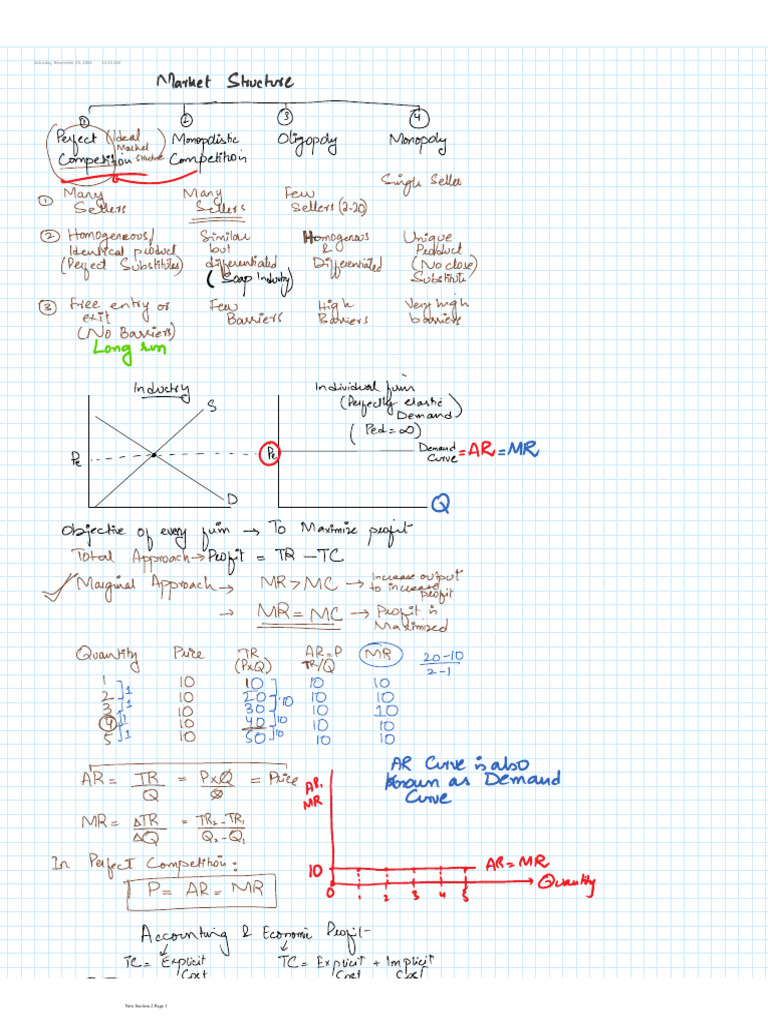 Saturday, November 19, 2022
Market Structure
① ② ③ ④
Perfect Competition (Ideal Market Structure) Monopolistic Competition Oligopoly Monopoly
Single Seller
① Many Sellers Many Sellers Few Sellers (2-20)
② Homogeneous/ Identical product (Perfect Substitutes) Similar but differentiated (Soap Industry) Homogenous & Differentiated Unique Product (No close) Substitute
③ Free entry or exit (No Barriers) Few Barriers High Barriers Very high barriers
Long run
Industry
S
Pe
D
Individual firm
(Perfectly elastic
Demand)
(Ped = ∞)
Pe
Demand Curve = AR = MR
Q
Objective of every firm → To Maximize profit
Total Approach → Profit = TR – TC
✓ Marginal Approach → MR > MC → Increase output to increase profit
→ MR = MC → Profit is Maximized
Quantity Price TR (PxQ) AR=P TR/Q MR 20-10 / 2-1
1 10 10 10 10
2 10 20 10 10
3 10 30 10 10
④ 10 40 10 10
5 10 50 10 10
1
1
1
1
10
10
10
AR = TR/Q = PxQ/Q = Price
AR Curve is also
known as Demand
Curve
MR = ΔTR/ΔQ = TR₂-TR₁/Q₂-Q₁
AR, MR
In Perfect Competition:
P = AR = MR
10
AR = MR
0 1 2 3 4 5
Quantity
Accounting & Economic Profit
TC = Explicit Cost TC = Explicit Cost + Implicit Cost
New Section 1 Page 1